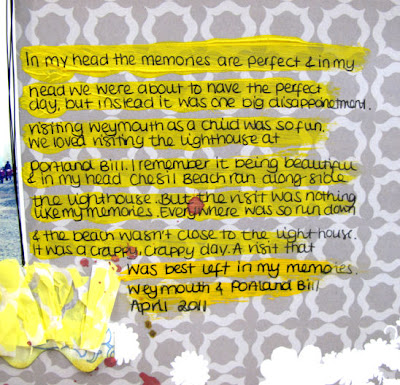 In my head the memories are perfect & in my
head we were about to have the perfect
day, but instead it was one big disappointment.
visiting Weymouth as a child was so fun.
We loved visiting the lighthouse at
Portland Bill. I remember it being beautiful
& in my head Chesil Beach ran along-side
the lighthouse. But the visit was nothing
like my memories. Everywhere was so run down
& the beach wasn't close to the lighthouse.
It was a crappy, crappy day. A visit that
was best left in my memories.
Weymouth & Portland Bill
April 2011